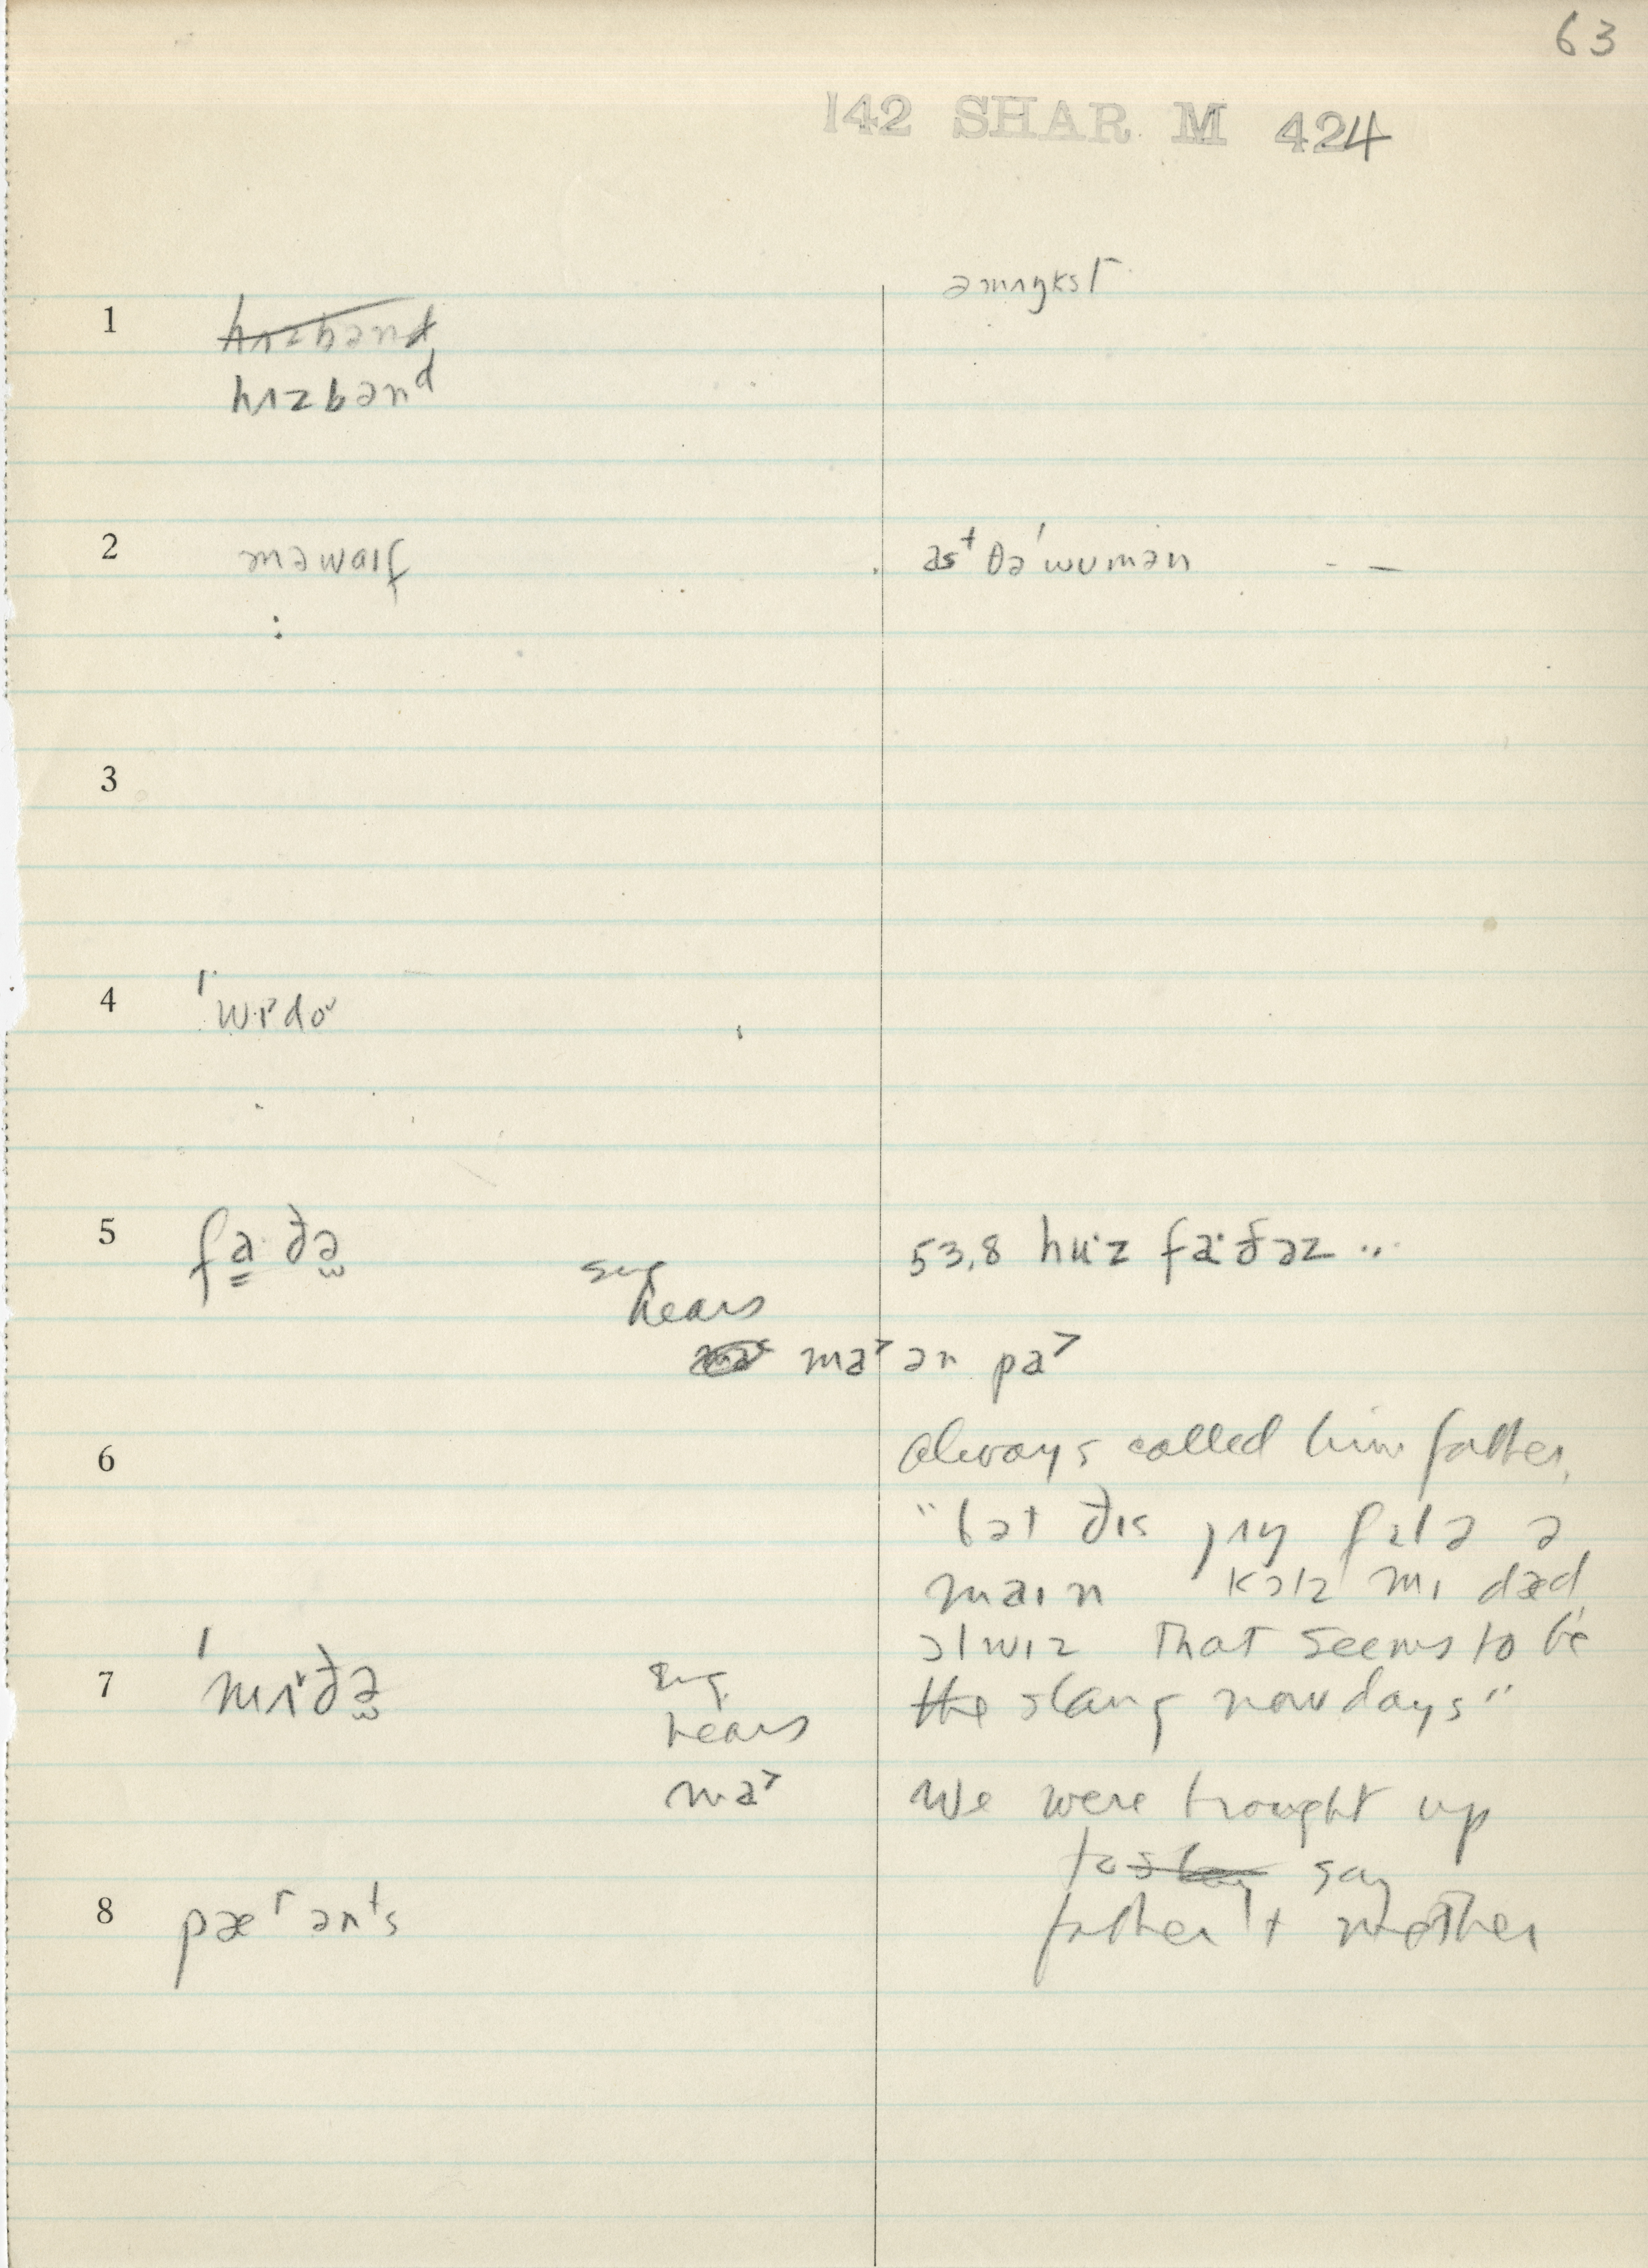 63
142 SHAR M 424
əmʌŋkst
1
hʌzbənd
hʌzbənᵈ
2 məwaɪf
əst ðə ˈwumən - –
3
4 ˈwɪ˅do˅
5 fa·ðə 53.8 hu·z fa·ðəz ..
hears
ma˃ ən pa˃
6 Always called him father,
"bət ðɪs jʌŋ fɛlə ə
maɪn kɔlz mɪ dæd
ɔlwɪz That seems to be
7 ˈmʌ˅ðə the slang nowdays"
hears
ma˃ We were brought up
to say
8 pæʳənᵗs father + mother